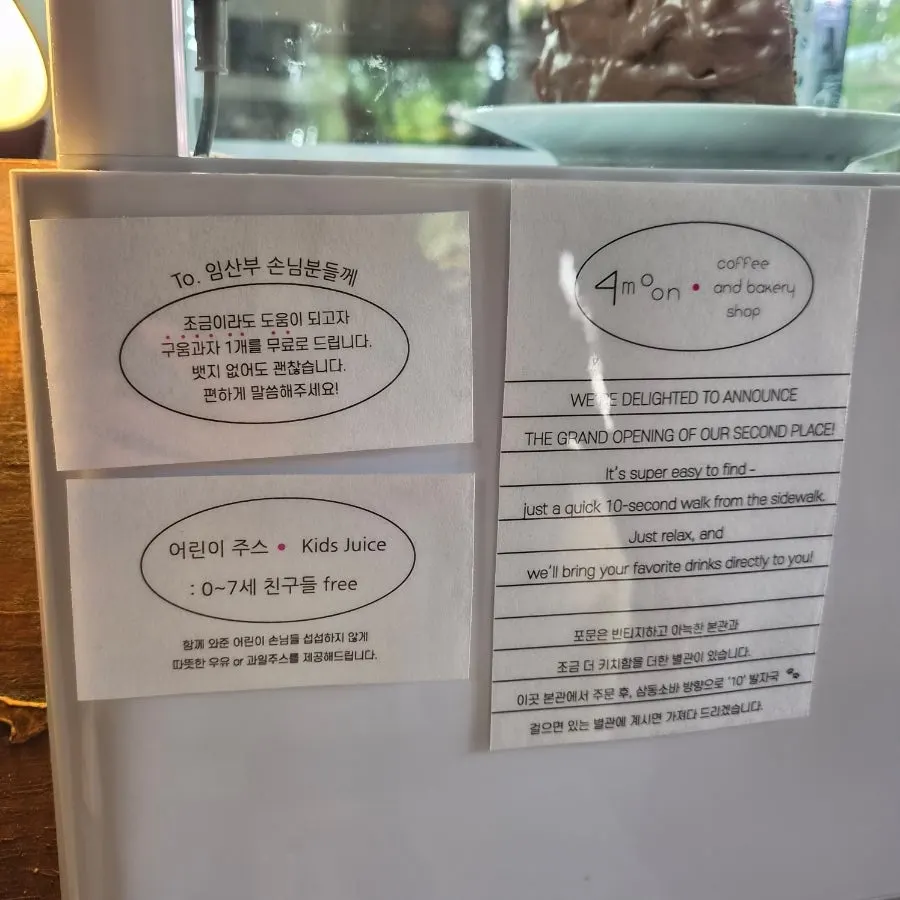 To. 임산부 손님분들께
조금이라도 도움이 되고자
구움과자 1개를 무료로 드립니다.
뱃지 없어도 괜찮습니다.
편하게 말씀해주세요!
어린이 주스 • Kids Juice
: 0~7세 친구들 free
함께 와준 어린이 손님들 섭섭하지 않게
따뜻한 우유 or 과일주스를 제공해드립니다.
4moon • coffee
and bakery
shop
WE'RE DELIGHTED TO ANNOUNCE
THE GRAND OPENING OF OUR SECOND PLACE!
It's super easy to find -
just a quick 10-second walk from the sidewalk.
Just relax, and
we'll bring your favorite drinks directly to you!
포문은 빈티지하고 아늑한 본관과
조금 더 키치함을 더한 별관이 있습니다.
이곳 본관에서 주문 후, 삼동소바 방향으로 '10' 발자국
걸으면 있는 별관에 계시면 가져다 드리겠습니다.